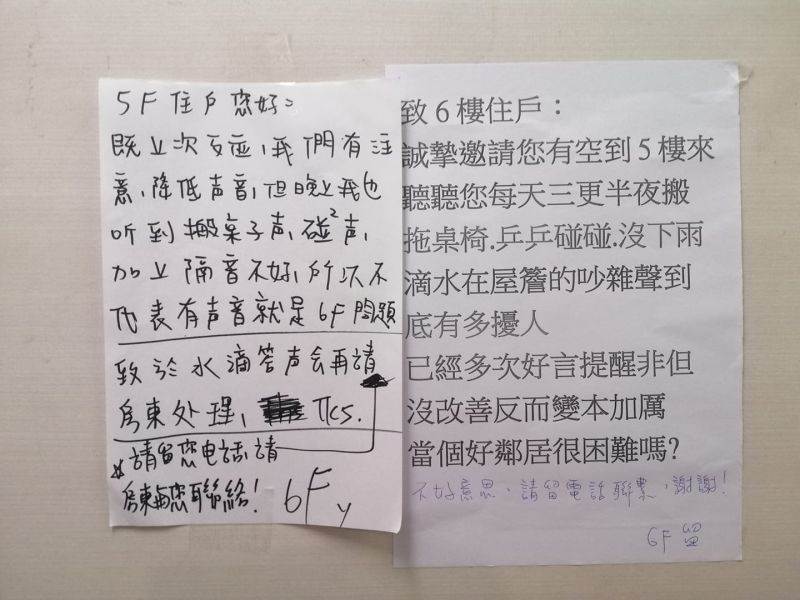 5F 住戶您好:
既上次反應,我們有注
意,降低声音,但晚上我也
听到搬桌子声,碰²声,
加上隔音不好,所以不
代表有声音就是6F問題
致於水滴答声会再請
房東处理, Tks.
*請留您電話,請
房東與您聯絡!
6F
致6樓住戶:
誠摯邀請您有空到5樓來
聽聽您每天三更半夜搬
拖桌椅.乒乒碰碰.沒下雨
滴水在屋簷的吵雜聲到
底有多擾人
已經多次好言提醒非但
沒改善反而變本加厲
當個好鄰居很困難嗎?
不好意思,請留電話聯絡,謝謝!
6F 留